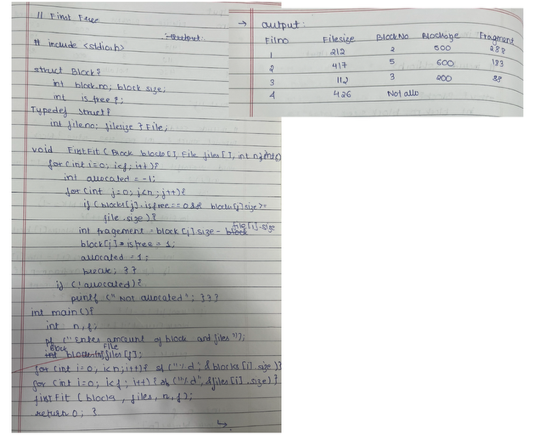 // First Free
# include <stdio.h>
struct Block {
int block_no, block size;
int is free };
Typedef struct {
int fileno; filesize } File;
void FirstFit ( Block blocks [], File files [], int n, int f)
for ( int i=0; i<f; i++) {
int allocated = -1;
for ( int j=0; j<n; j++) {
if ( blocks[j].isfree==0 && blocks[j] size >=
file.size) {
int fragement = block [j] size - file[i].size
block[j].isfree = 1;
allocated = 1;
break; } }
if ( ! allocated) {
printf ( " Not allocated " ; } } }
int main() {
int n, f;
pf ( " Enter amount of block and files " );
for ( int i=0; i<n; i++) { sf ( "%d", &blocks [i].size )}
for ( int i=0; i<f; i++) { sf ( "%d", &files [i].size) }
first Fit ( blocks, files, n, f);
return 0; }
→ output:
Filno Filesize BlockNo Blocksize Fragment
1 212 2 500 288
2 417 5 600 183
3 112 3 200 88
4 426 Not allo